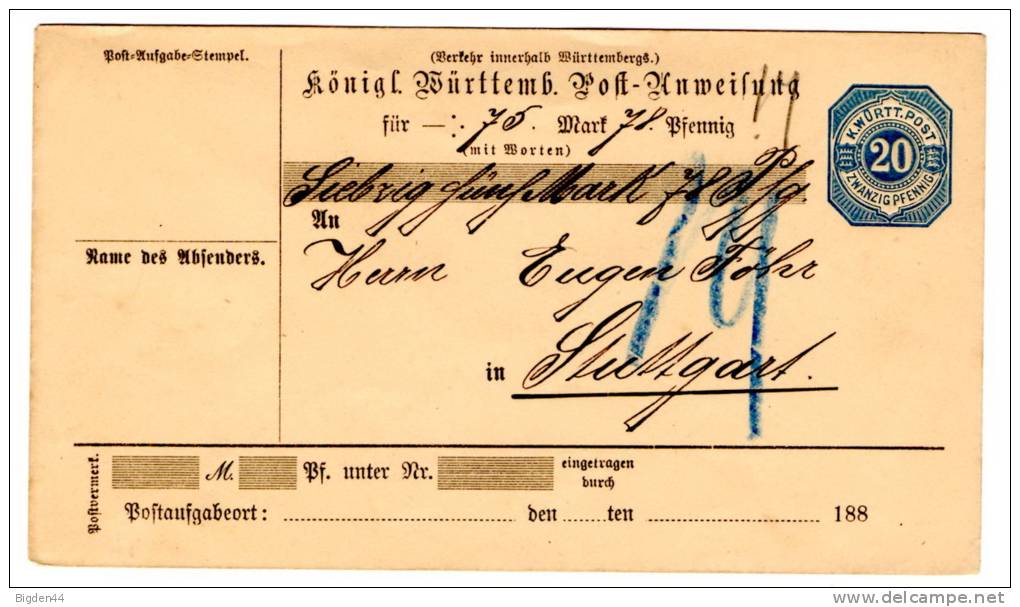 Post-Aufgabe-Stempel.
(Verkehr innerhalb Württembergs.)
Königl. Württemb. Post-Anweisung
für -: 75. Mark 78. Pfennig
(mit Worten)
Siebzig fünf Mark 78 Pfg.
K. WÜRTT. POST
20
ZWANZIG PFENNIG
An
Name des Absenders.
Herrn Eugen Föhr
in Stuttgart.
19
Postvermerk.
M. Pf. unter Nr. eingetragen durch
Postaufgabeort: den ten 188
Bigden44
www.delcampe.net